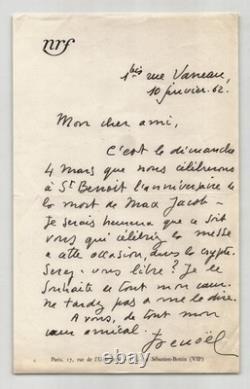 nrf
1 bis rue Vaneau,
10 janvier 62.
Mon cher ami,
C'est le dimanche
4 mars que nous célébrerons
à St Benoit l'anniversaire de
la mort de Max Jacob -
Je serais heureux que ce soit
vous qui célébriez la messe
à cette occasion, dans la crypte.
Serez-vous libre? Je le
souhaite de tout mon cœur.
ne tardez pas à me le dire.
A vous, de tout mon
cœur amical.
Paris, 17, rue de l'U Sébastien-Bottin (VIIe)